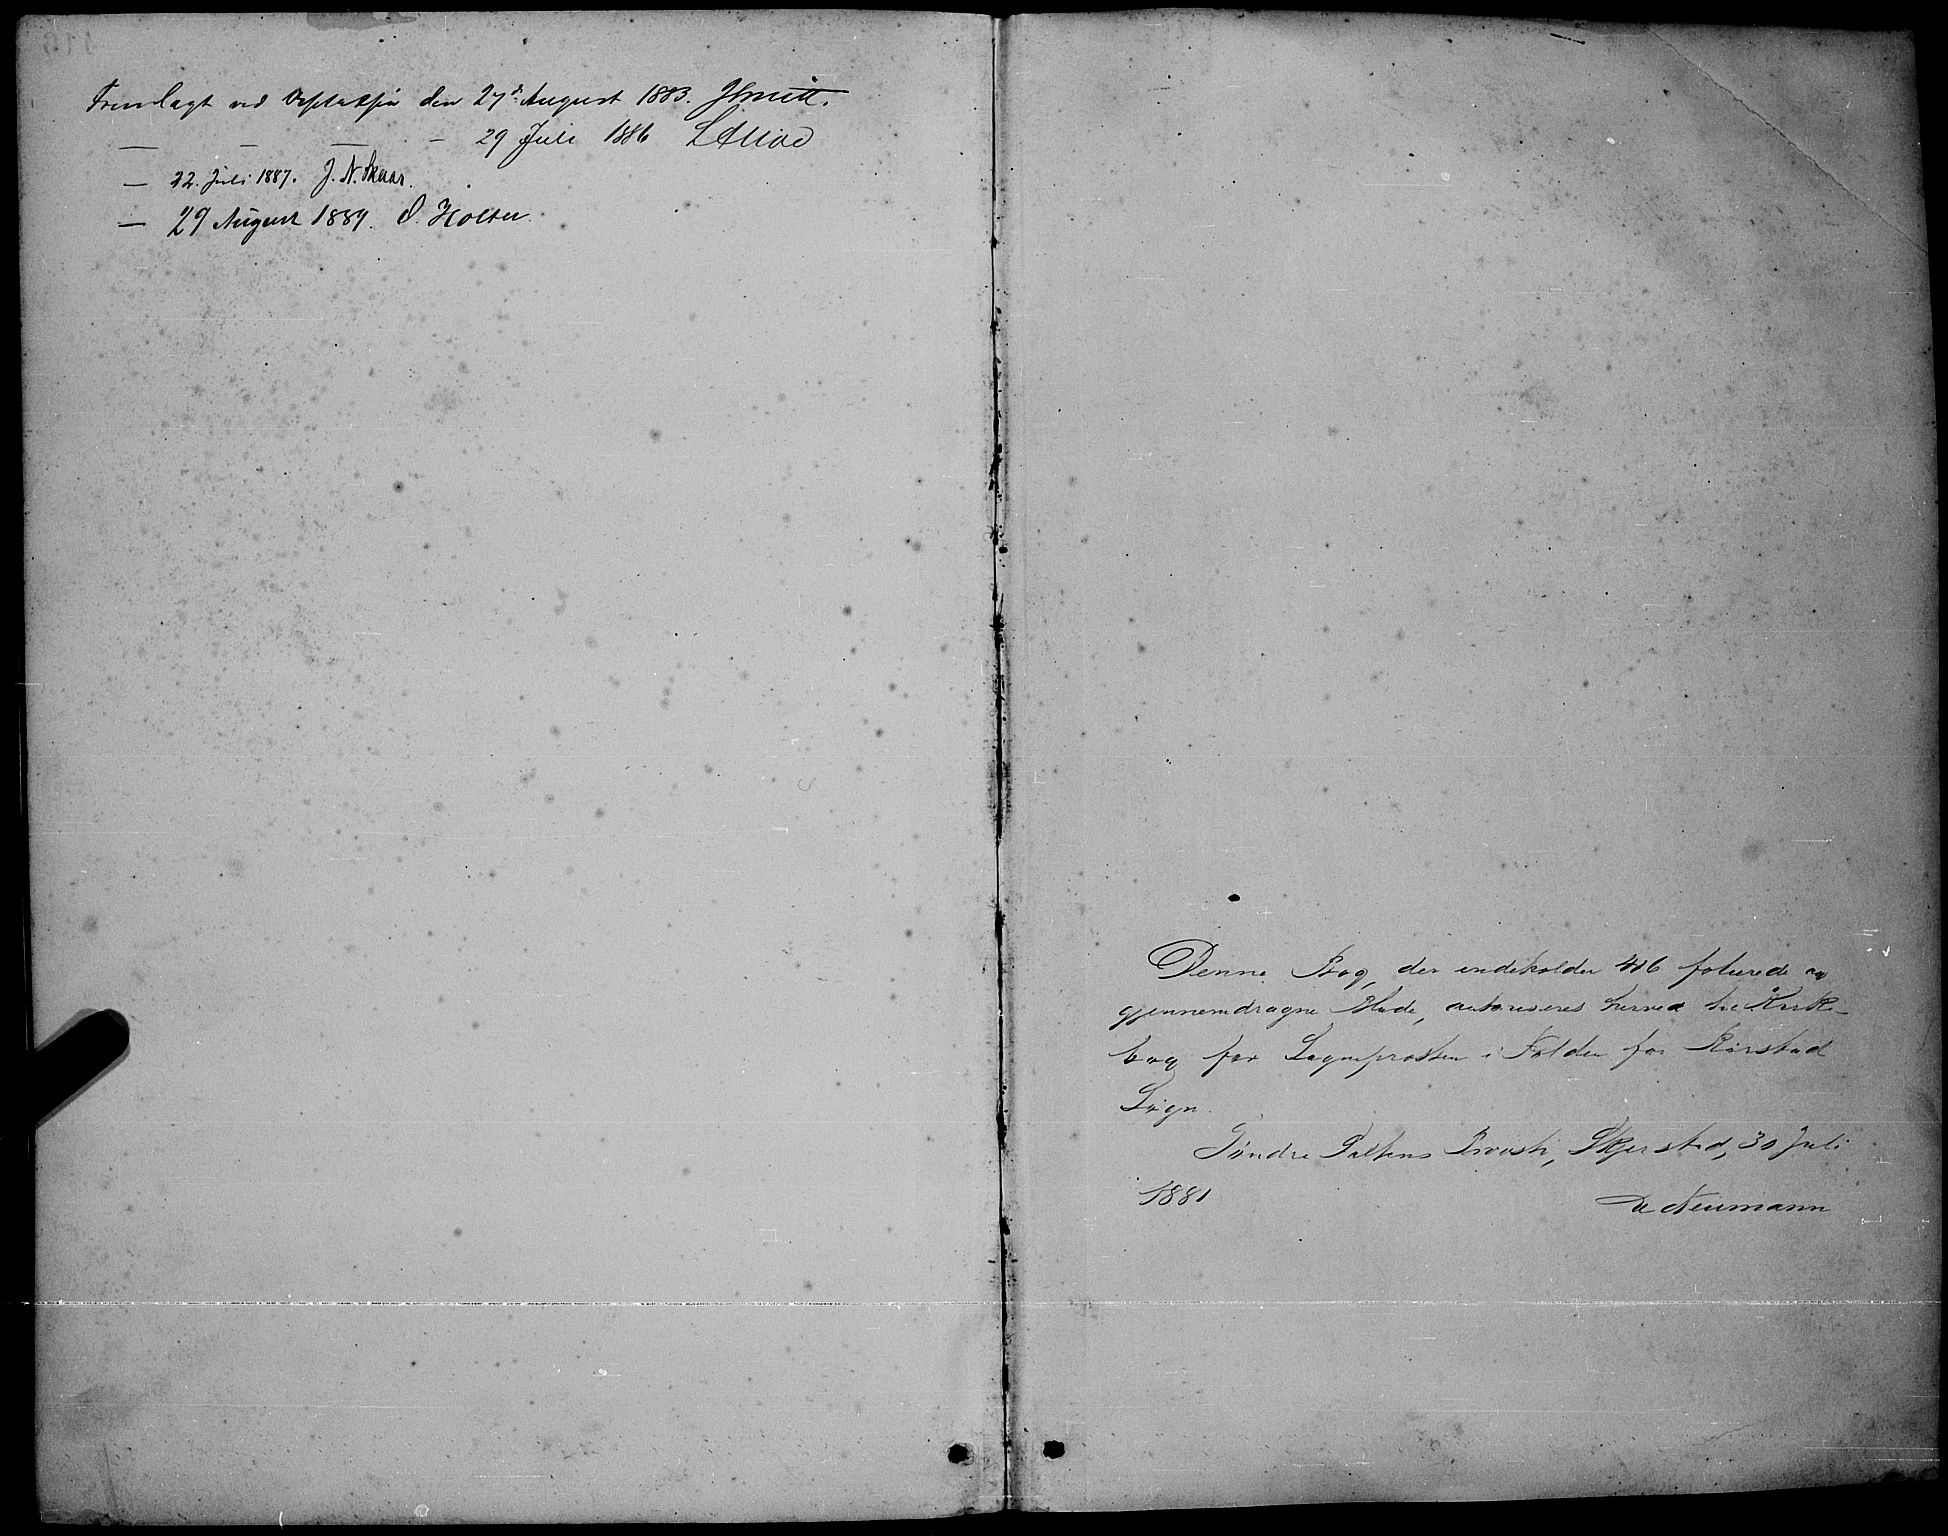 Fremlagt ved Visitatsen den 27de August 1883. JSmitt.
— — — — 29 Juli 1886
— 22. Juli 1887. J. N. Skaar.
— 29 August 1889. O. Holter.
Denne Bog, der indeholder 416 folierede og
gjennemdragne Blade, autoriseres herved til Kirke-
bog for Sognepræsten i Folden for Rørstad
Sogn.
Søndre Saltens Provsti, Skjerstad, 30 Juli
1881
Neumann